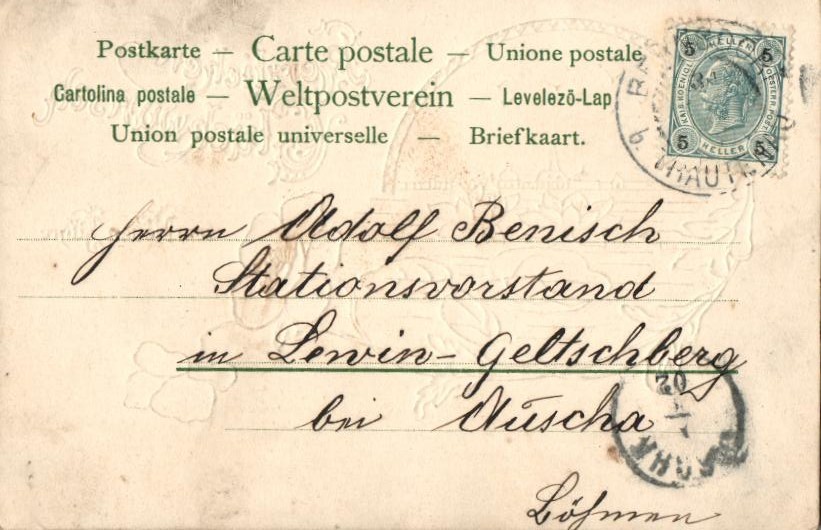 Postkarte — Carte postale — Unione postale
Cartolina postale — Weltpostverein — Levelezö-Lap
Union postale universelle — Briefkaart.
5 HELLER 5
KAIS. KOENIGL. OESTERR. POST
5 HELLER 5
TRAUTENAU
Herrn Adolf Benisch
Stationsvorstand
in Lewin-Geltschberg
bei Auscha
02
Böhmen